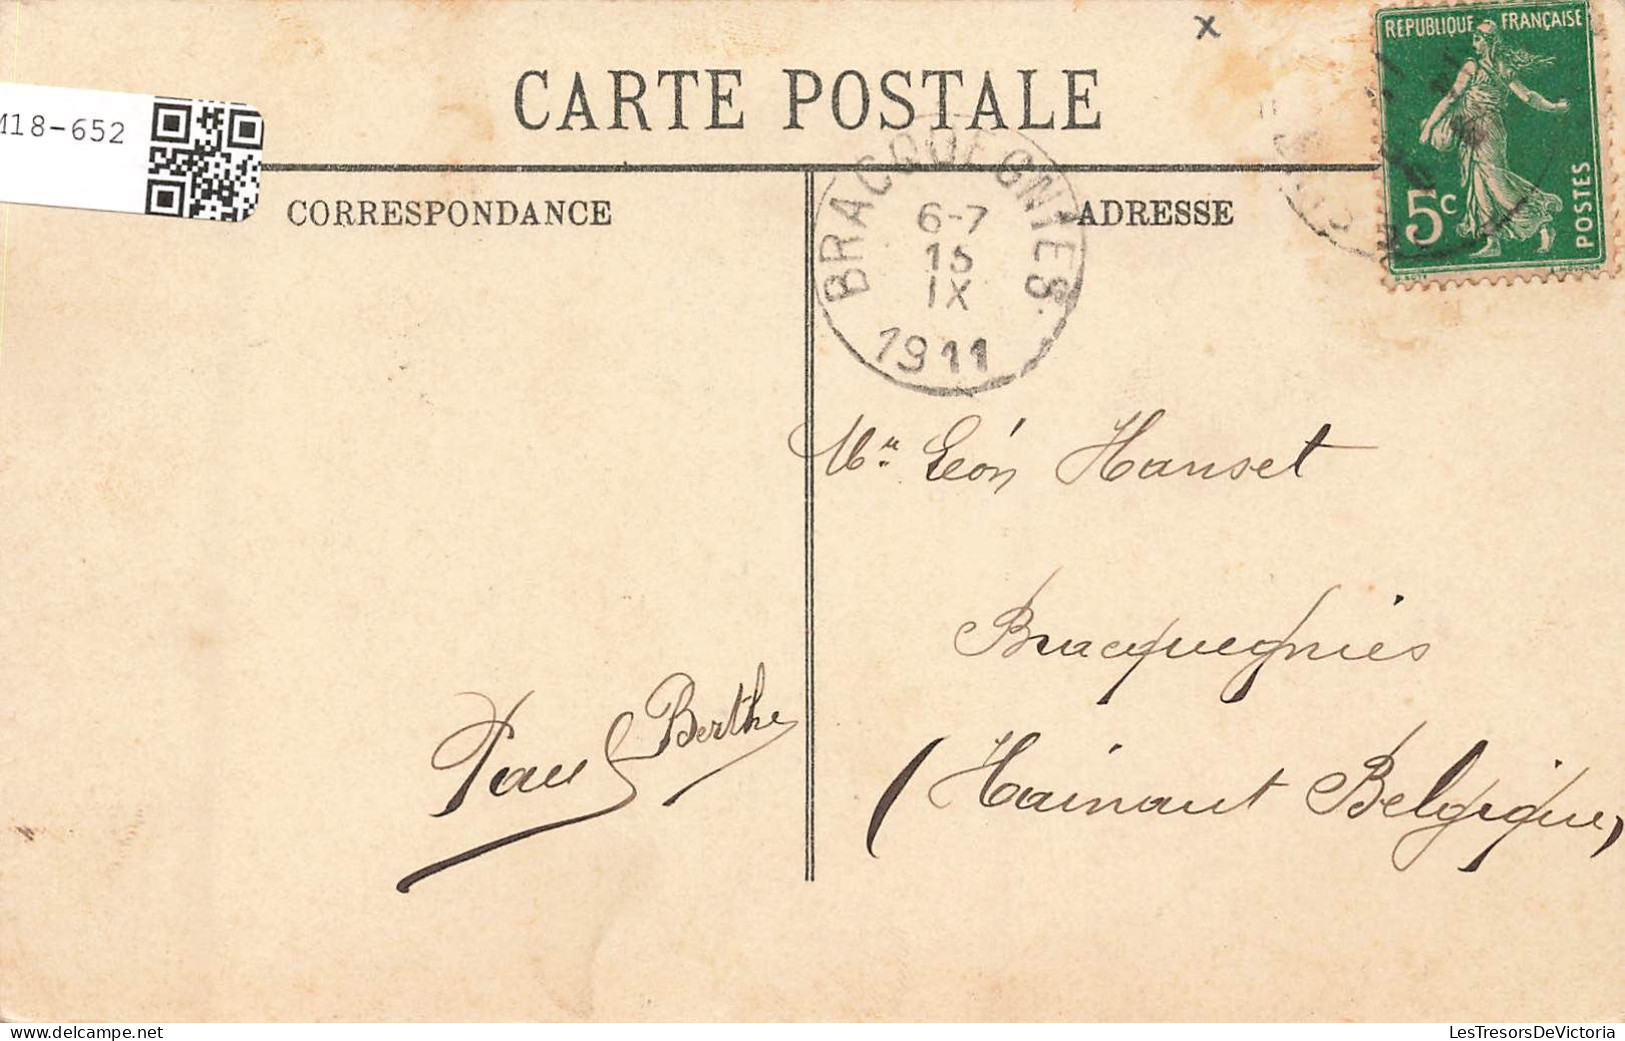 x
RÉPUBLIQUE FRANÇAISE
5c
POSTES
CARTE POSTALE
M18-652
CORRESPONDANCE
ADRESSE
BRACQUEGNIES
6-7
15
IX
1911
Mr Léon Hanset
Bracquegnies
(Hainaut Belgique)
Paul Berthe
delcampe.net
LesTresorsDeVictoria